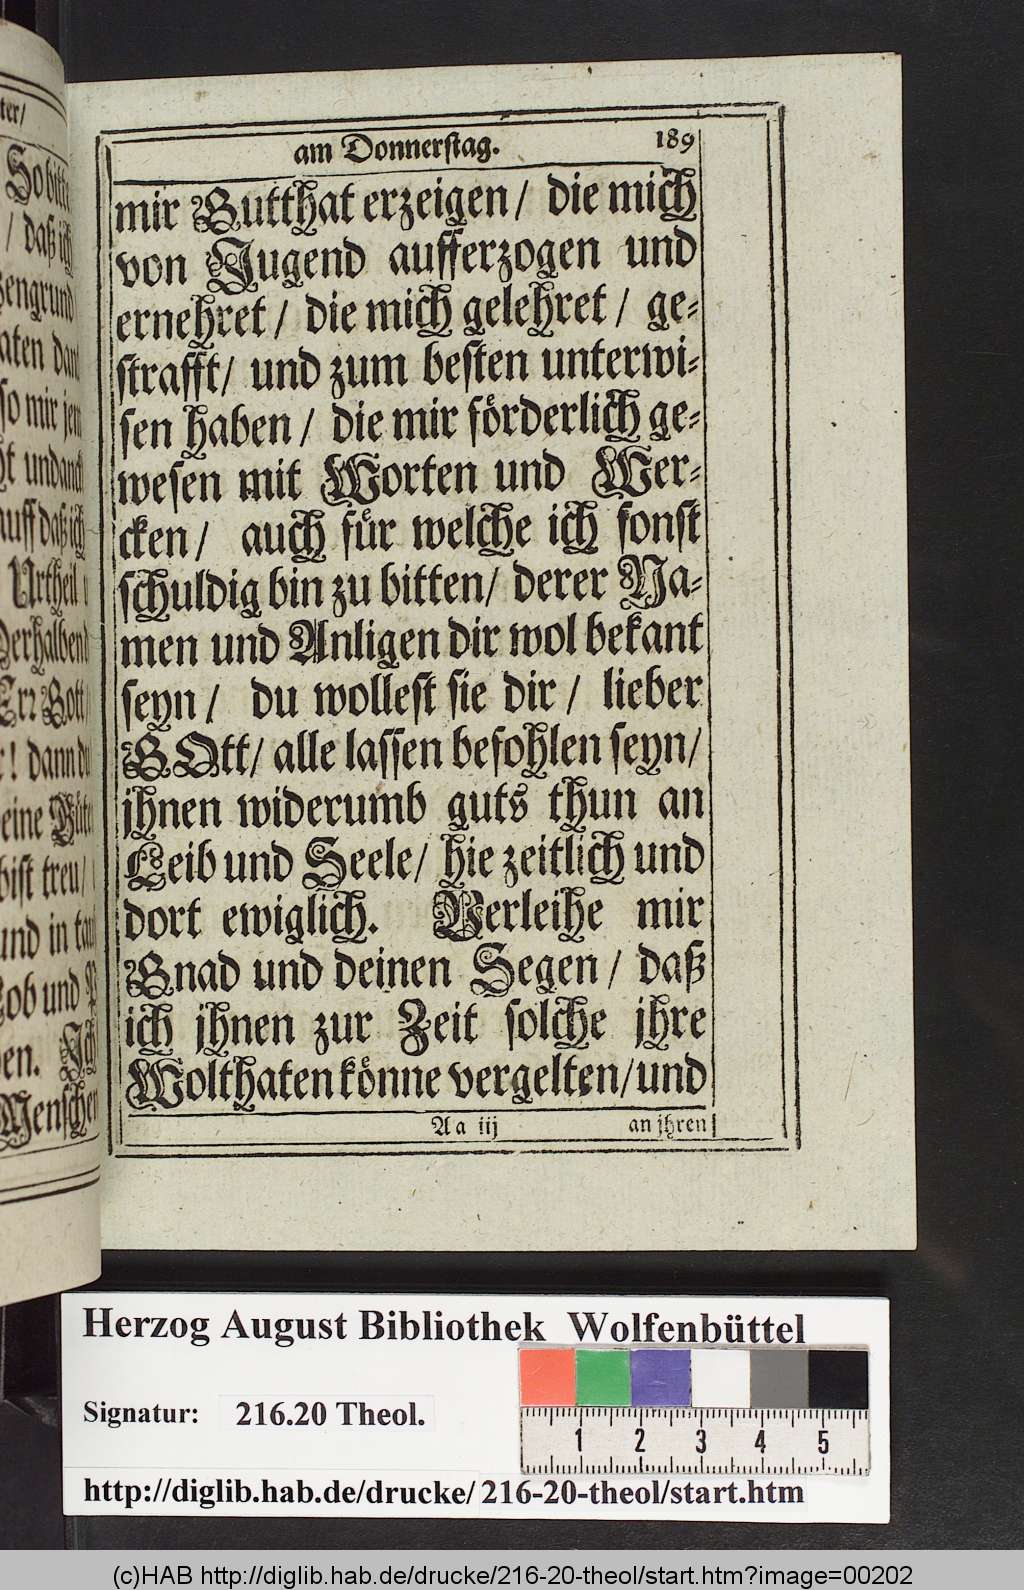 am Donnerstag. 189
mir Gutthat erzeigen / die mich
von Jugend aufferzogen und
ernehret / die mich gelehret / ge-
strafft / und zum besten unterwi-
sen haben / die mir förderlich ge-
wesen mit Worten und Wer-
cken / auch für welche ich sonst
schuldig bin zu bitten / derer Na-
men und Anligen dir wol bekant
seyn / du wollest sie dir / lieber
GOtt / alle lassen befohlen seyn /
jhnen widerumb guts thun an
Leib und Seele / hie zeitlich und
dort ewiglich. Verleihe mir
Gnad und deinen Segen / daß
ich jhnen zur Zeit solche jhre
Wolthaten könne vergelten / und
Aa iij an jhren
ter /
So bitte
/ daß ich
engrund
aten dan
so mir jem
ht undanck
auff daß ich
Urtheil
Derhalben
Err Gott /
r! dann du
eine Güte
bist treu /
und in
Lob und
en. Ich
Menschen
Herzog August Bibliothek Wolfenbüttel
Signatur: 216.20 Theol.
1 2 3 4 5
http://diglib.hab.de/drucke/216-20-theol/start.htm
(c)HAB http://diglib.hab.de/drucke/216-20-theol/start.htm?image=00202